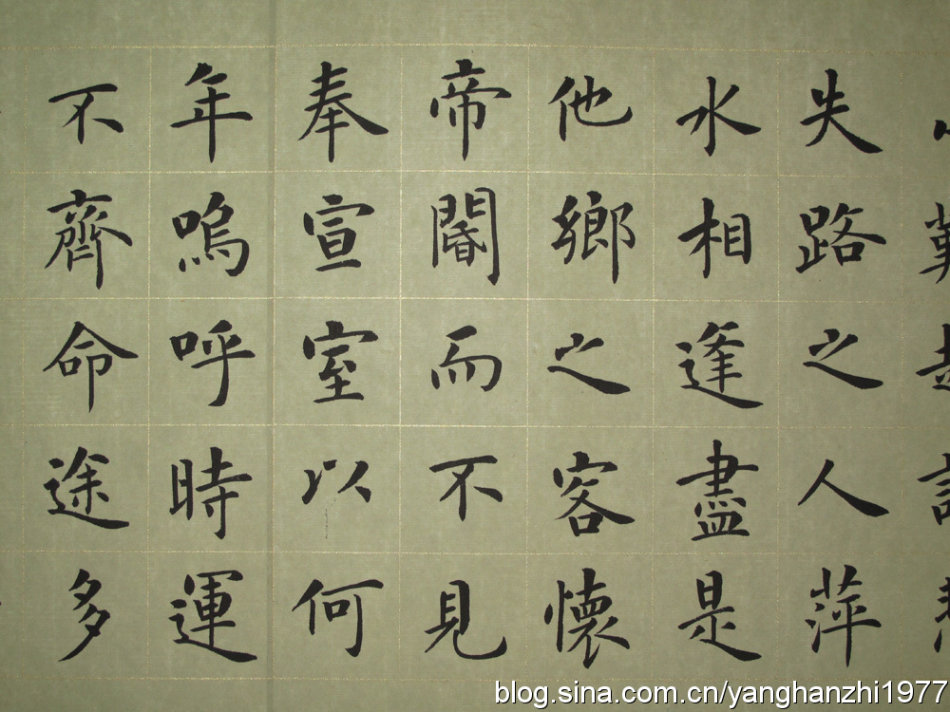 失路之人萍
水相逢盡是
他鄉之客懷
帝閽而不見
奉宣室以何
年嗚呼時運
不齊命途多
blog.sina.com.cn/yanghanzhi1977